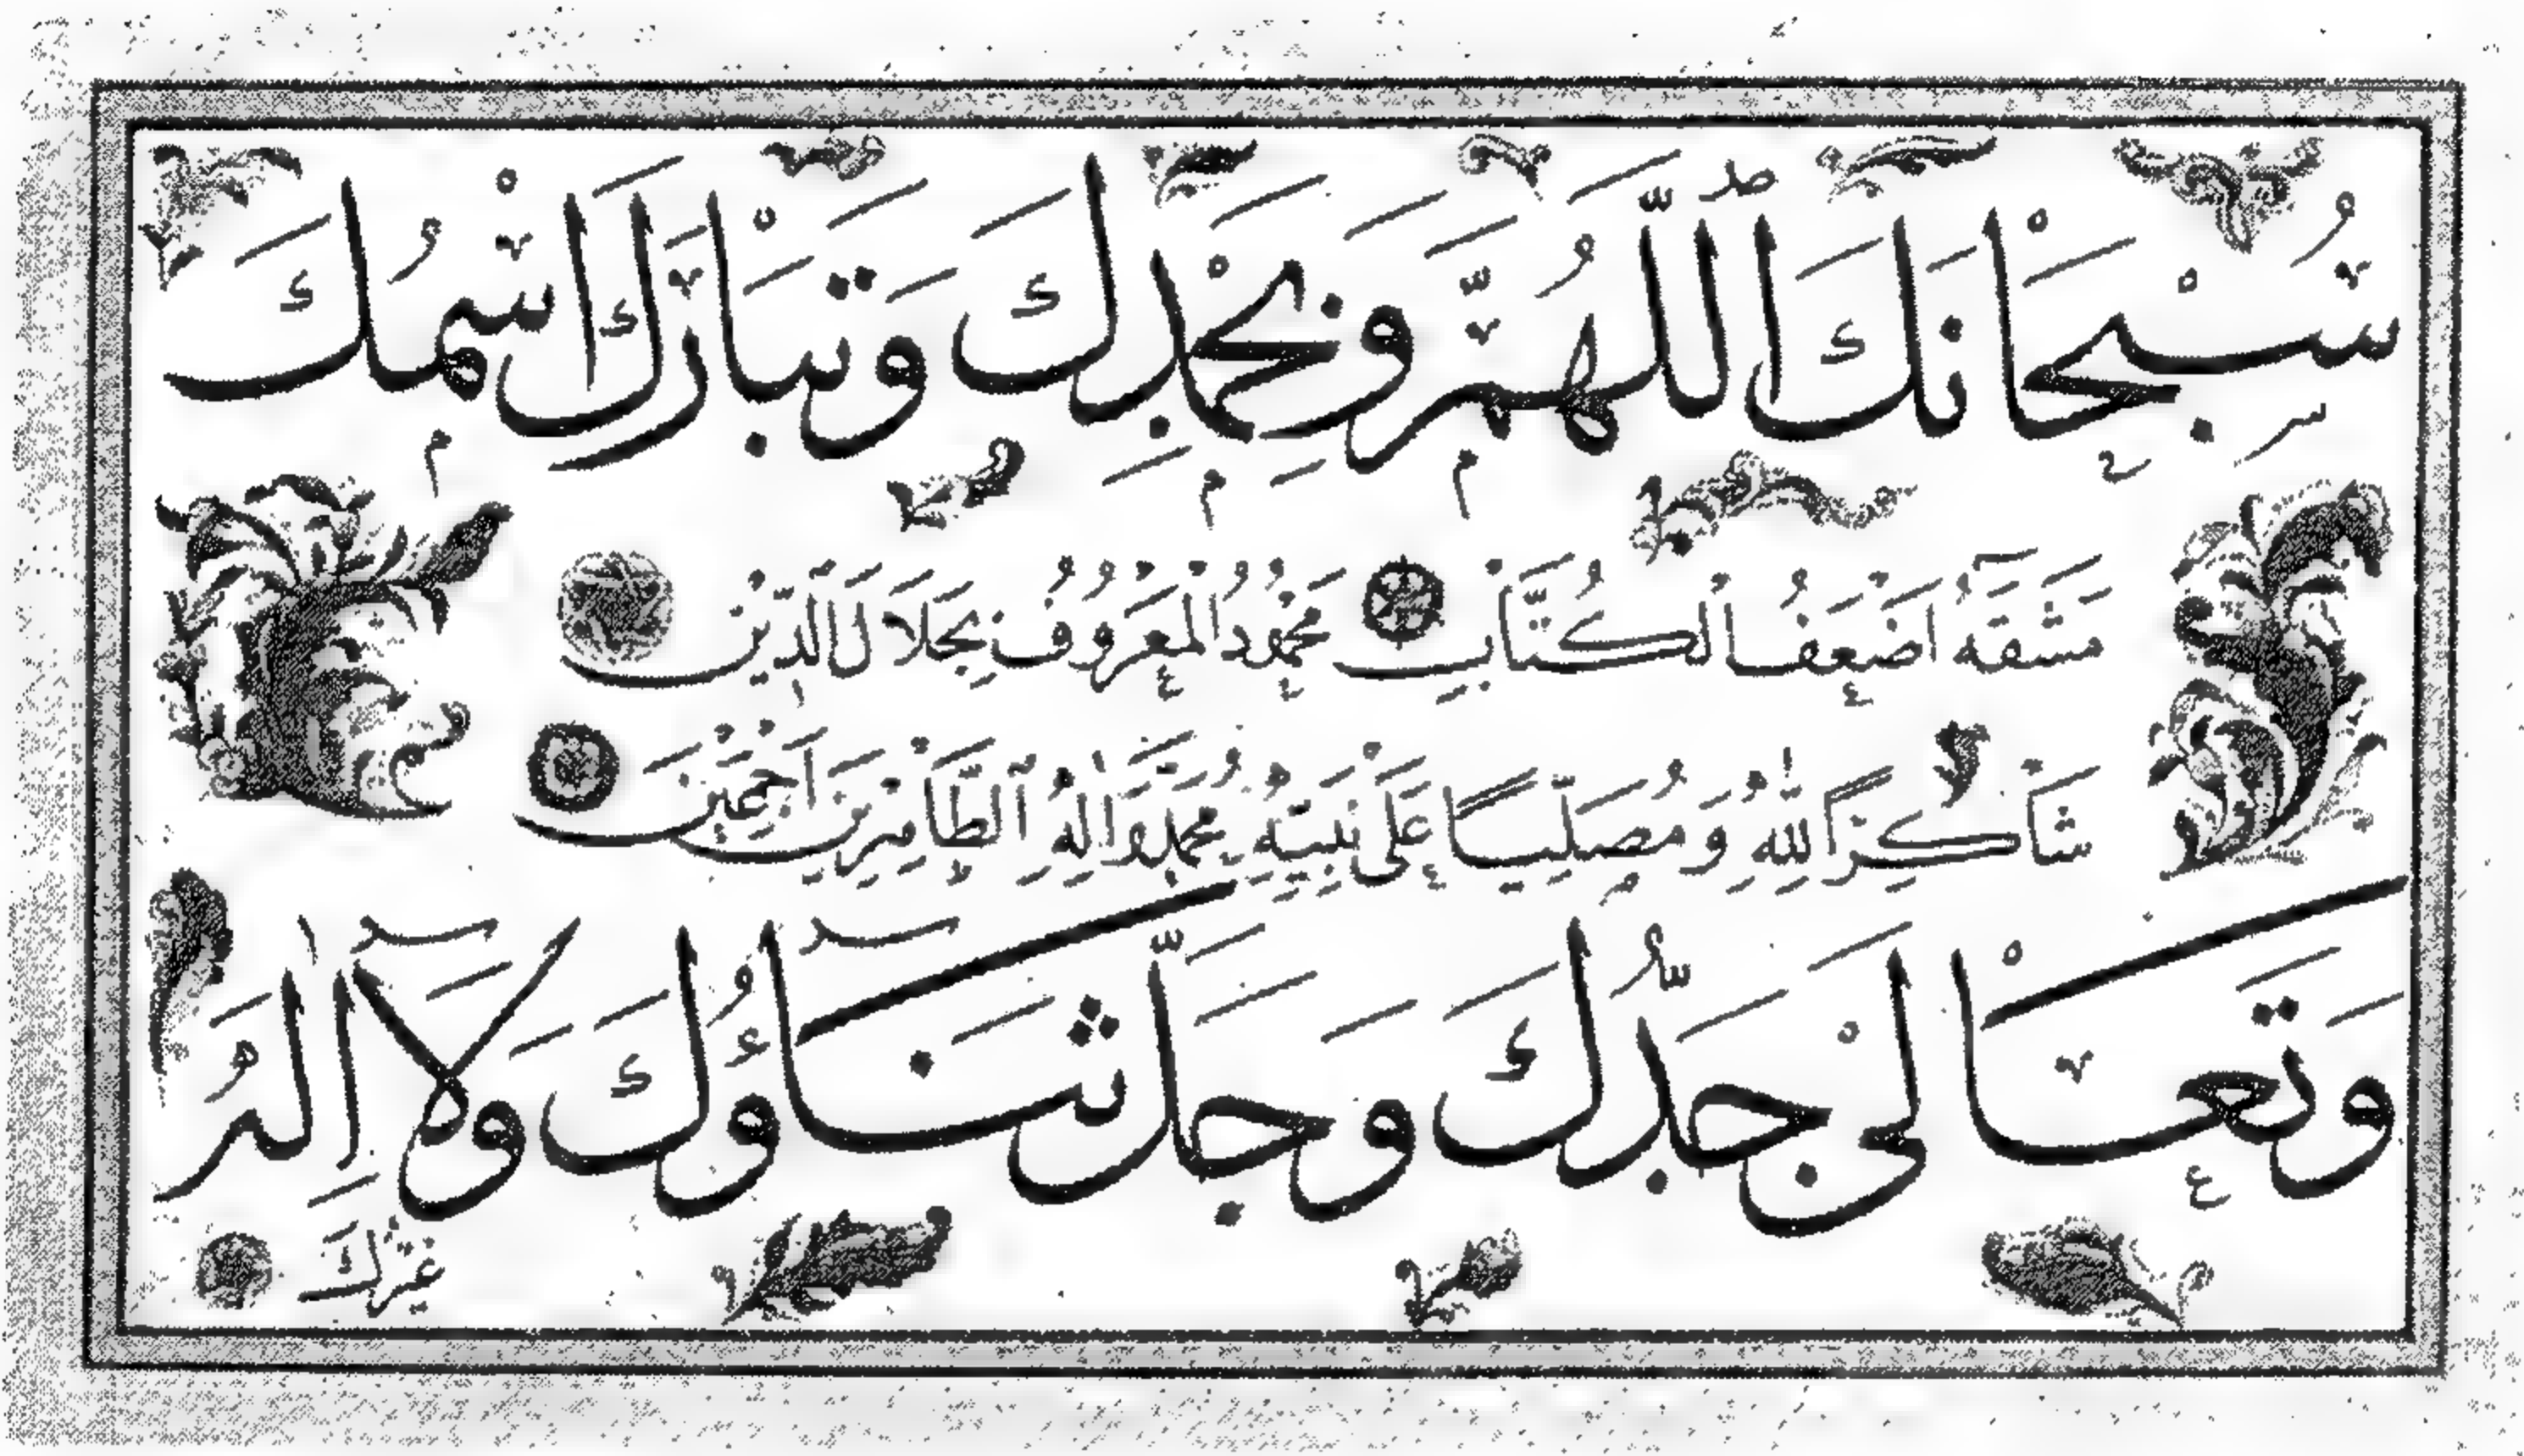 سُبْحَانَكَ اَللّٰهُمَّ وَبِحَمْدِكَ وَتَبَارَكَ اسْمُكَ
مَشَقَهُ اَضْعَفُ الْكُتَّابِ مَحْمُودُ الْمَعْرُوفُ بِجَلَالِ الدِّينِ
شَاكِرًا لِلّٰهِ وَمُصَلِّيًا عَلَى نَبِيِّهِ مُحَمَّدٍ وَاٰلِهِ الطَّاهِرِينَ اَجْمَعِينَ
وَتَعَالَى جَدُّكَ وَجَلَّ ثَنَاؤُكَ وَلَا اِلٰهَ
غَيْرُكَ